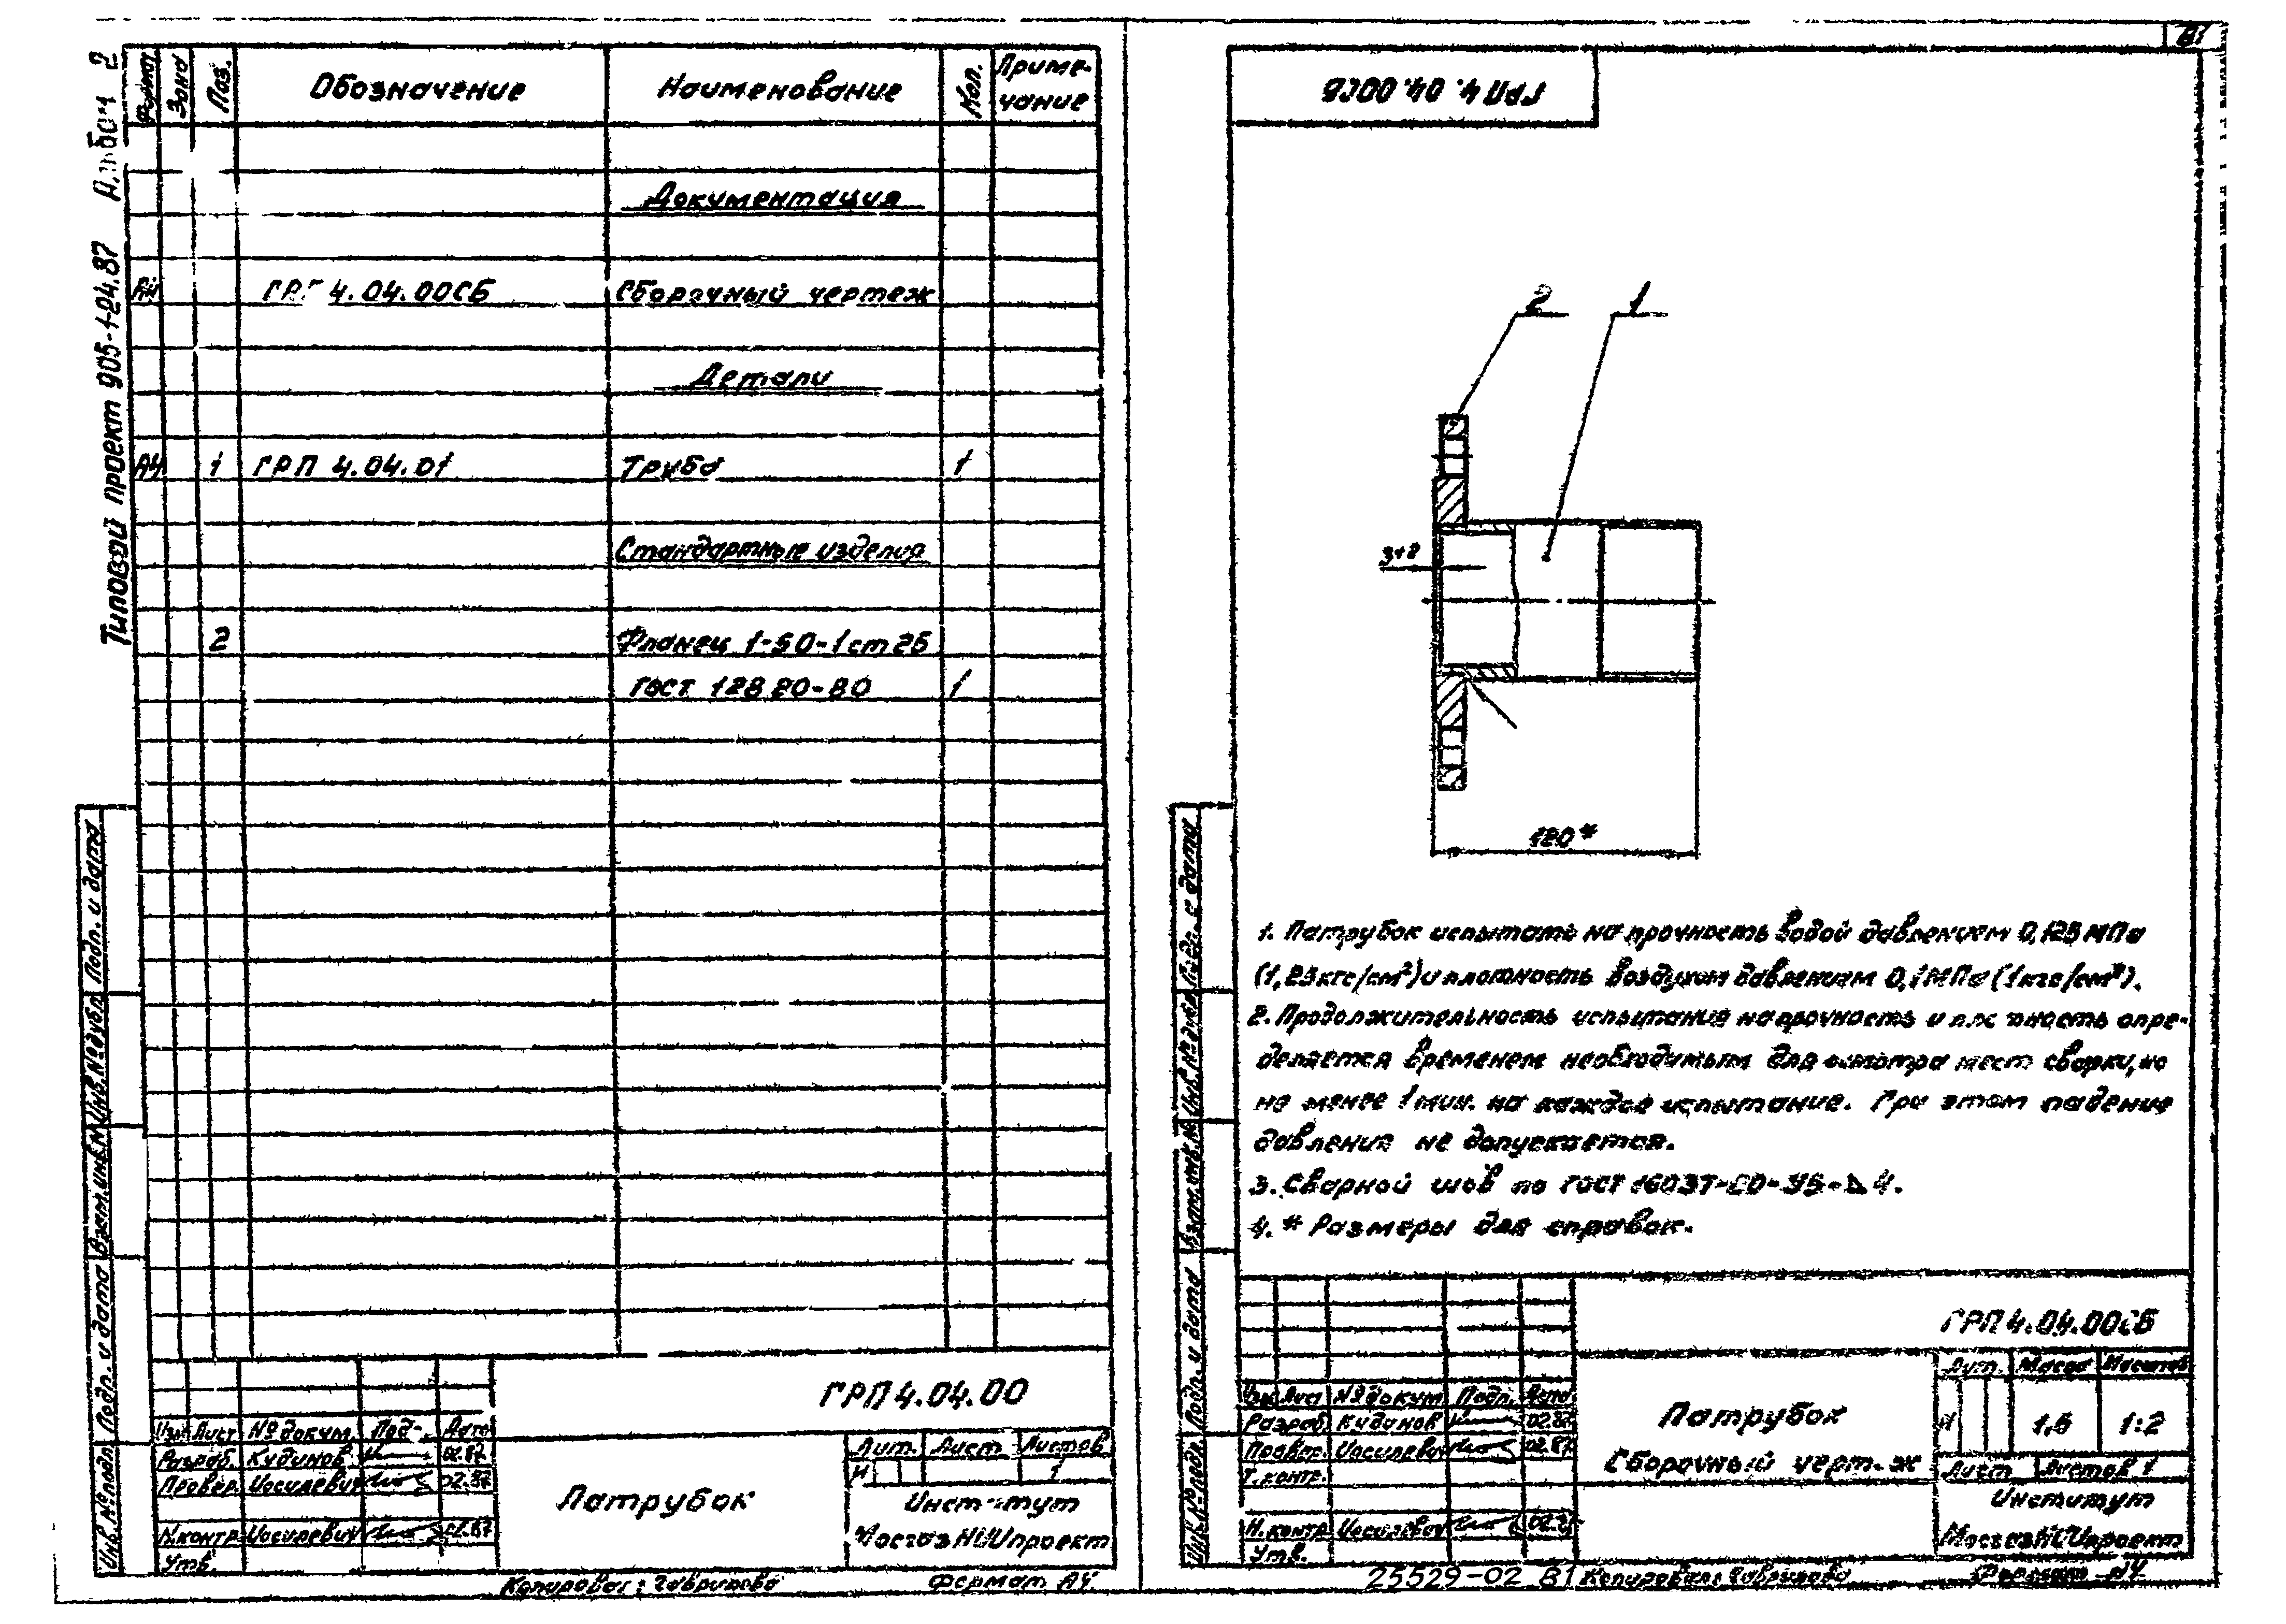 Альбом 2
Типовой проект 905-1-24.87
Формат Зона Поз. Обозначение Наименование Кол. Приме-
чание
Документация
А4 ГРП 4.04.00СБ Сборочный чертеж
Детали
А4 1 ГРП 4.04.01 Труба 1
Стандартные изделия
2 Фланец 1-50-1 ст 25
ГОСТ 12820-80 1
Инв.№ подл. Подп. и дата Взам.инв.№ Инв.№ дубл. Подп. и дата
ГРП 4.04.00
Изм Лист № докум. Подп. Дата
Разраб. Кудинов 02.87
Провер. Иосилевич 02.87
Н.контр Иосилевич 02.87
Утв.
Патрубок
Лит. Лист Листов
И 1
Институт
МосгазНИИпроект
Копировал: Гаврилова Формат А4
81
ГРП 4.04.00СБ
2 1
3+2
120*
1. Патрубок испытать на прочность водой давлением 0,125 МПа
(1,25 кгс/см²) и плотность воздухом давлением 0,1 МПа (1 кгс/см²).
2. Продолжительность испытания на прочность и плотность опре-
деляется временем необходимым для осмотра мест сварки, но
не менее 1 мин. на каждое испытание. При этом падение
давления не допускается.
3. Сварной шов по ГОСТ 16037-80-У5-⊿4.
4. * Размеры для справок.
Инв.№ подл. Подп. и дата Взам.инв.№ Инв.№ дубл. Подп. и дата
ГРП 4.04.00СБ
Изм Лист № докум Подп. Дата
Разраб. Кудинов 02.87
Провер. Иосилевич 02.87
Т.контр.
Н.контр Иосилевич 02.87
Утв.
Патрубок
Сборочный чертеж
Лит. Масса Масштаб
И 1,6 1:2
Лист Листов 1
Институт
МосгазНИИпроект
25529-02 81 Копировал: Гаврилова Формат А4